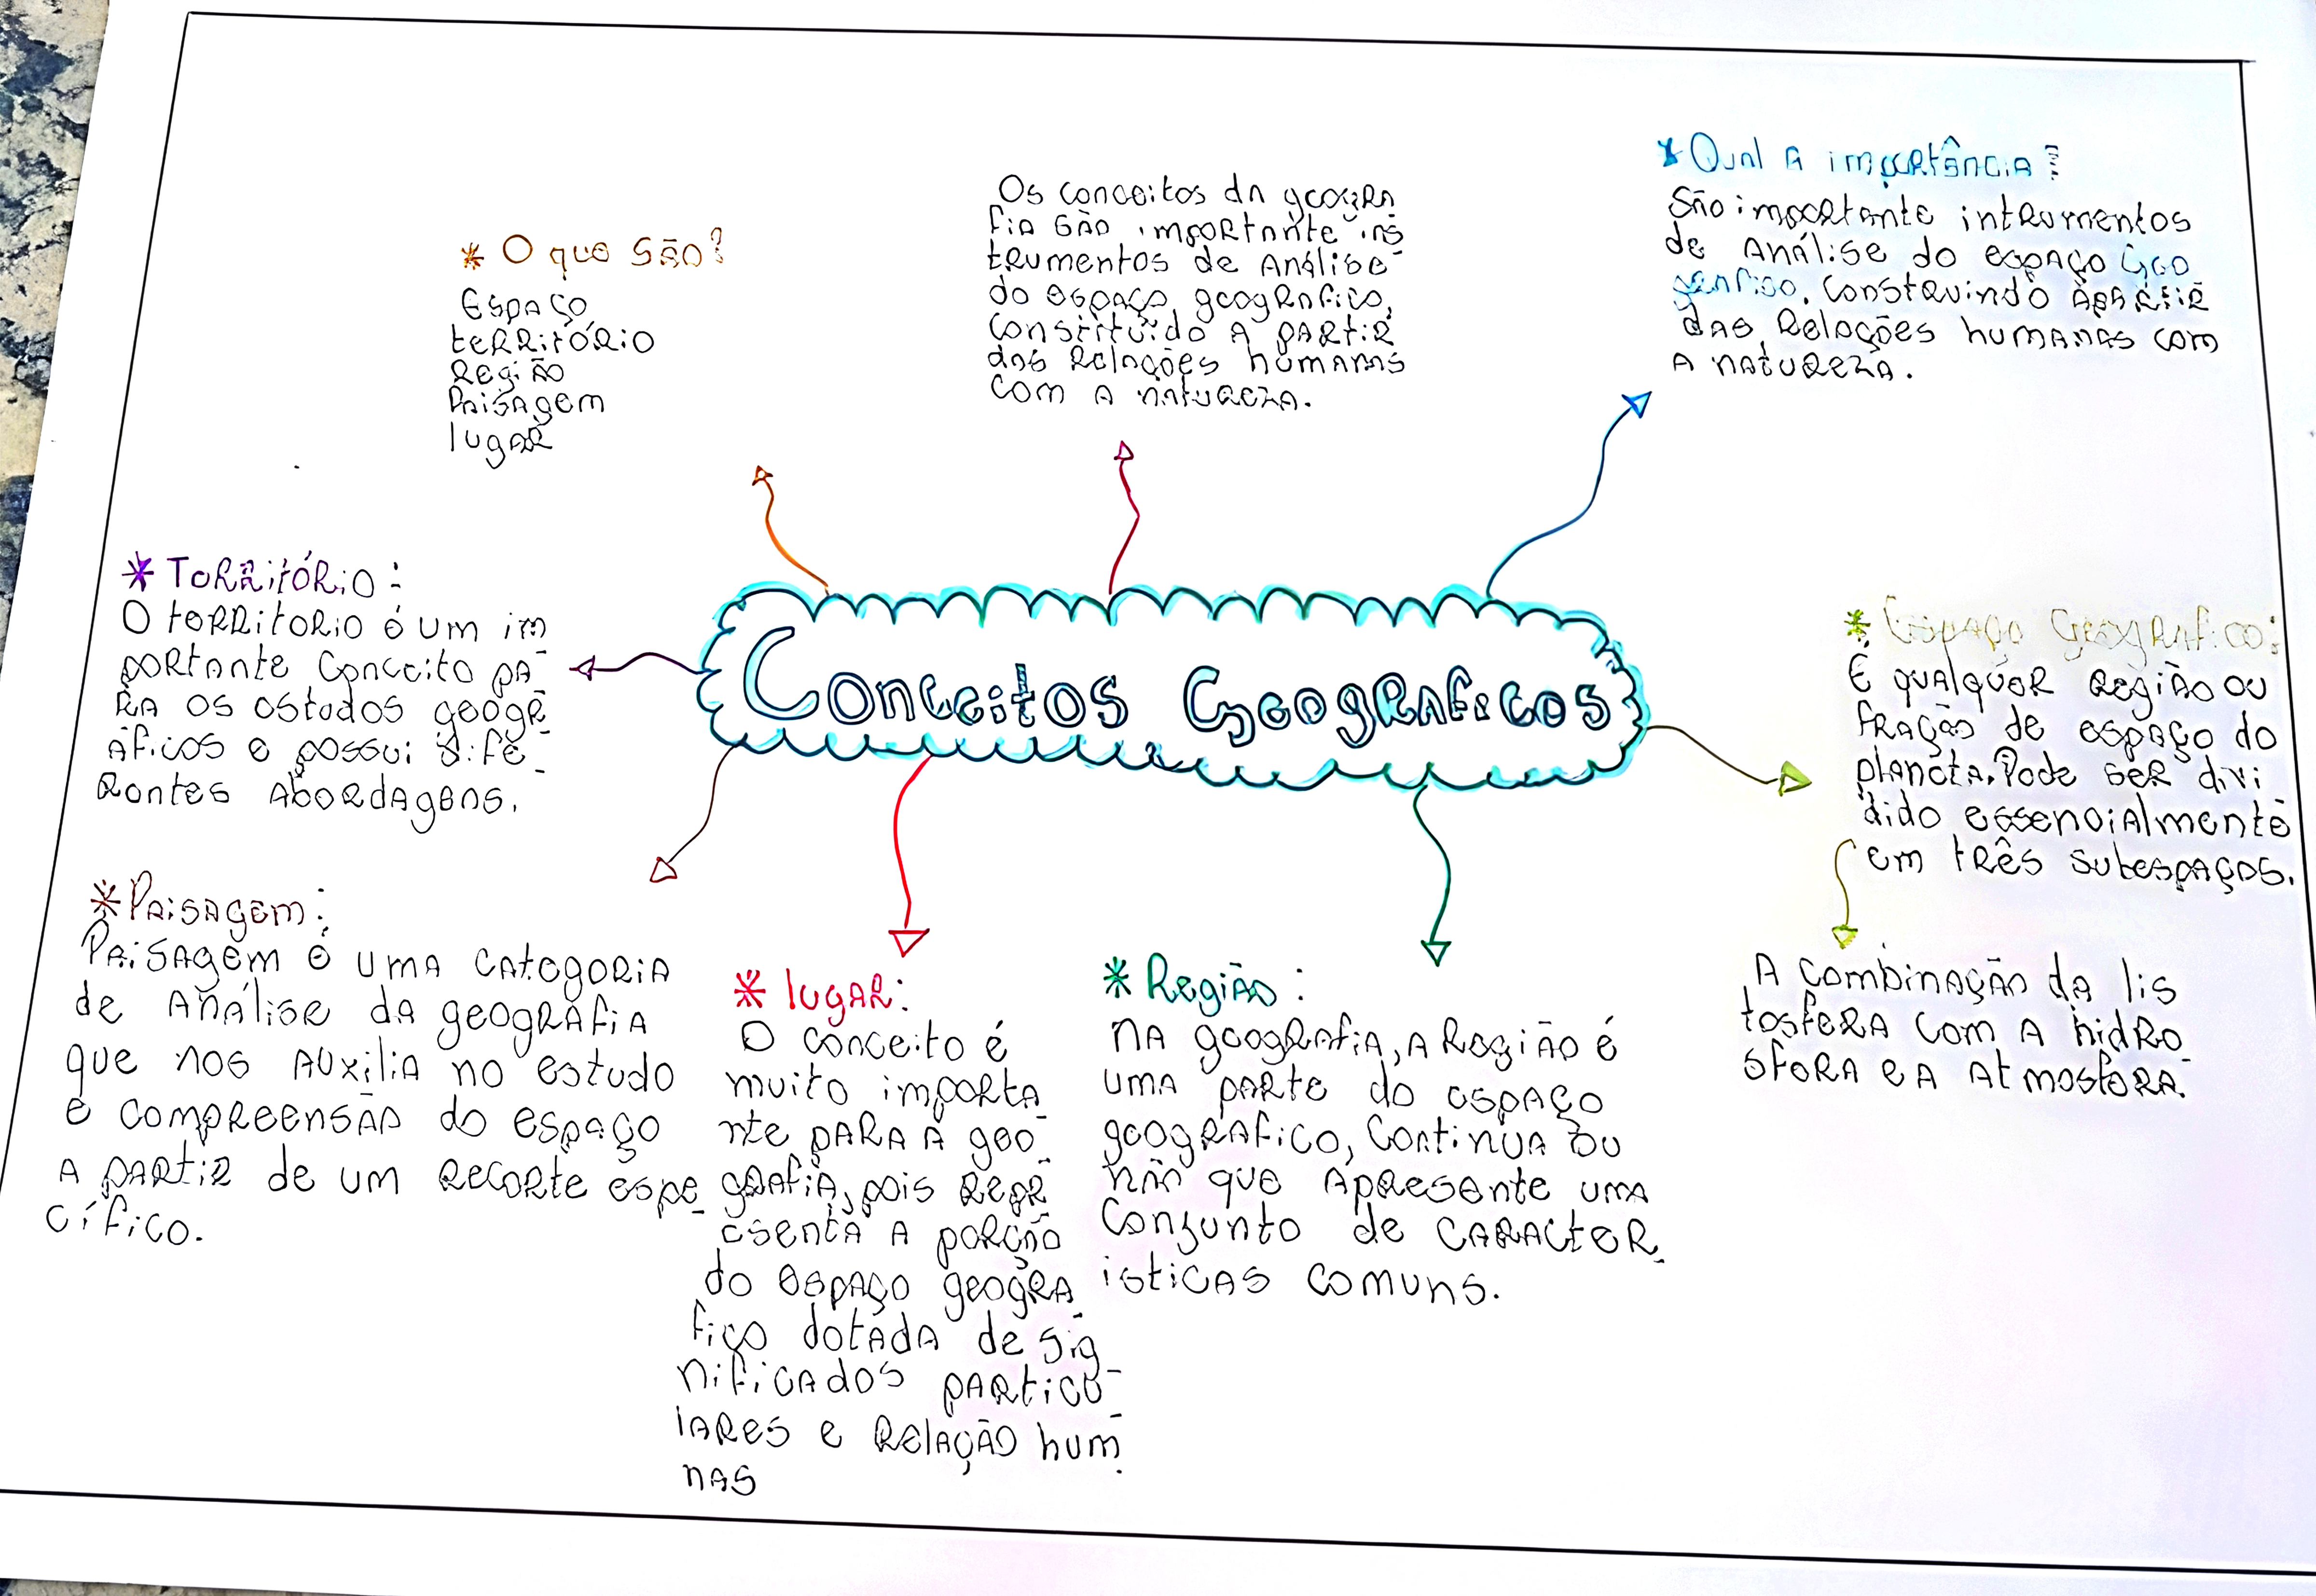 * O que são?
Espaço
território
Região
Paisagem
lugar
Os conceitos da geogra
fia são importante ins
trumentos de Análise
do espaço geografico,
constituído A partir
das Relações humanas
com A natureza.
* Qual A importância?
São importante intrumentos
de Análise do espaço Geo
gráfico, Construindo Apartir
das Relações humanas com
A natureza.
* Território:
O territorio é um im
portante Conceito pa-
ra os estudos geogr-
áficos e possui dife-
rentes Abordagens.
Conceitos Geograficos
* Espaço Geografico:
É qualquer Região ou
fração de espaço do
planeta. Pode ser divi
dido essencialmente
em três subespaços.
A combinação da lis
tosfera com A hidro
sfera e A Atmosfera.
* Paisagem:
Paisagem é uma categoria
de Análise da geografia
que nos Auxilia no estudo
e compreensão do espaço
A partir de um Recorte espe-
cífico.
* lugar:
O conceito é
muito importa-
nte para A geo-
grafia, pois Repr-
esenta A porção
do espaço geogra-
fico dotada de sig-
nificados particu-
lares e Relação hum-
nas
* Região:
na geografia, A Região é
uma parte do espaço
geografico, Continua ou
não que Apresente uma
Conjunto de caracter-
isticas comuns.